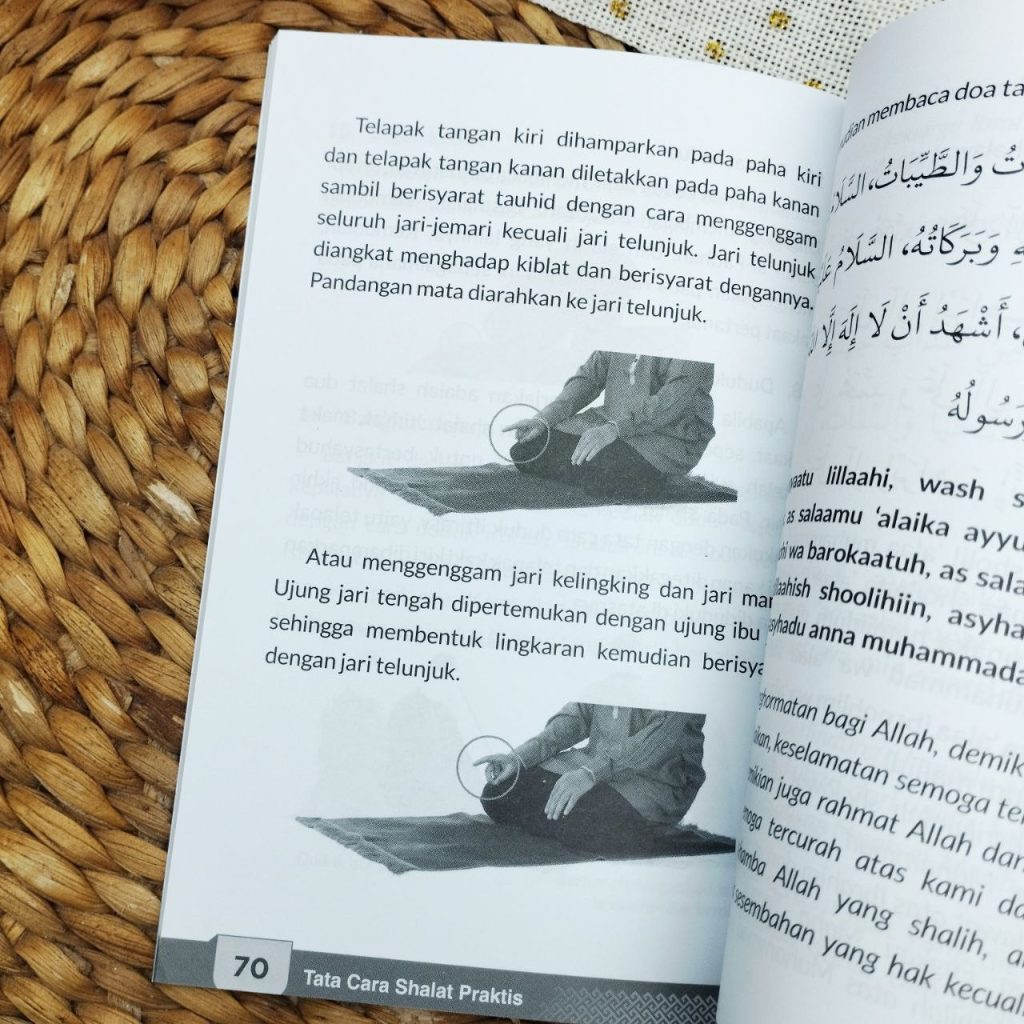 Telapak tangan kiri dihamparkan pada paha kiri
dan telapak tangan kanan diletakkan pada paha kanan
sambil berisyarat tauhid dengan cara menggenggam
seluruh jari-jemari kecuali jari telunjuk. Jari telunjuk
diangkat menghadap kiblat dan berisyarat dengannya.
Pandangan mata diarahkan ke jari telunjuk.
Atau menggenggam jari kelingking dan jari
Ujung jari tengah dipertemukan dengan ujung ibu
sehingga membentuk lingkaran kemudian
dengan jari telunjuk.
70
Tata Cara Shalat Praktis
membaca doa
وَالطَّيِّبَاتُ،
وَبَرَكَاتُهُ، السَّلَامُ
أَشْهَدُ أَنْ لَا إِلَهَ إِلَّا
lillaahi, wash
as salaamu ‘alaika
wa barokaatuh, as
shoolihiin,
anna
bagi Allah,
keselamatan semoga
juga rahmat Allah
tercurah atas kami
Allah yang shalih,
sesembahan yang hak